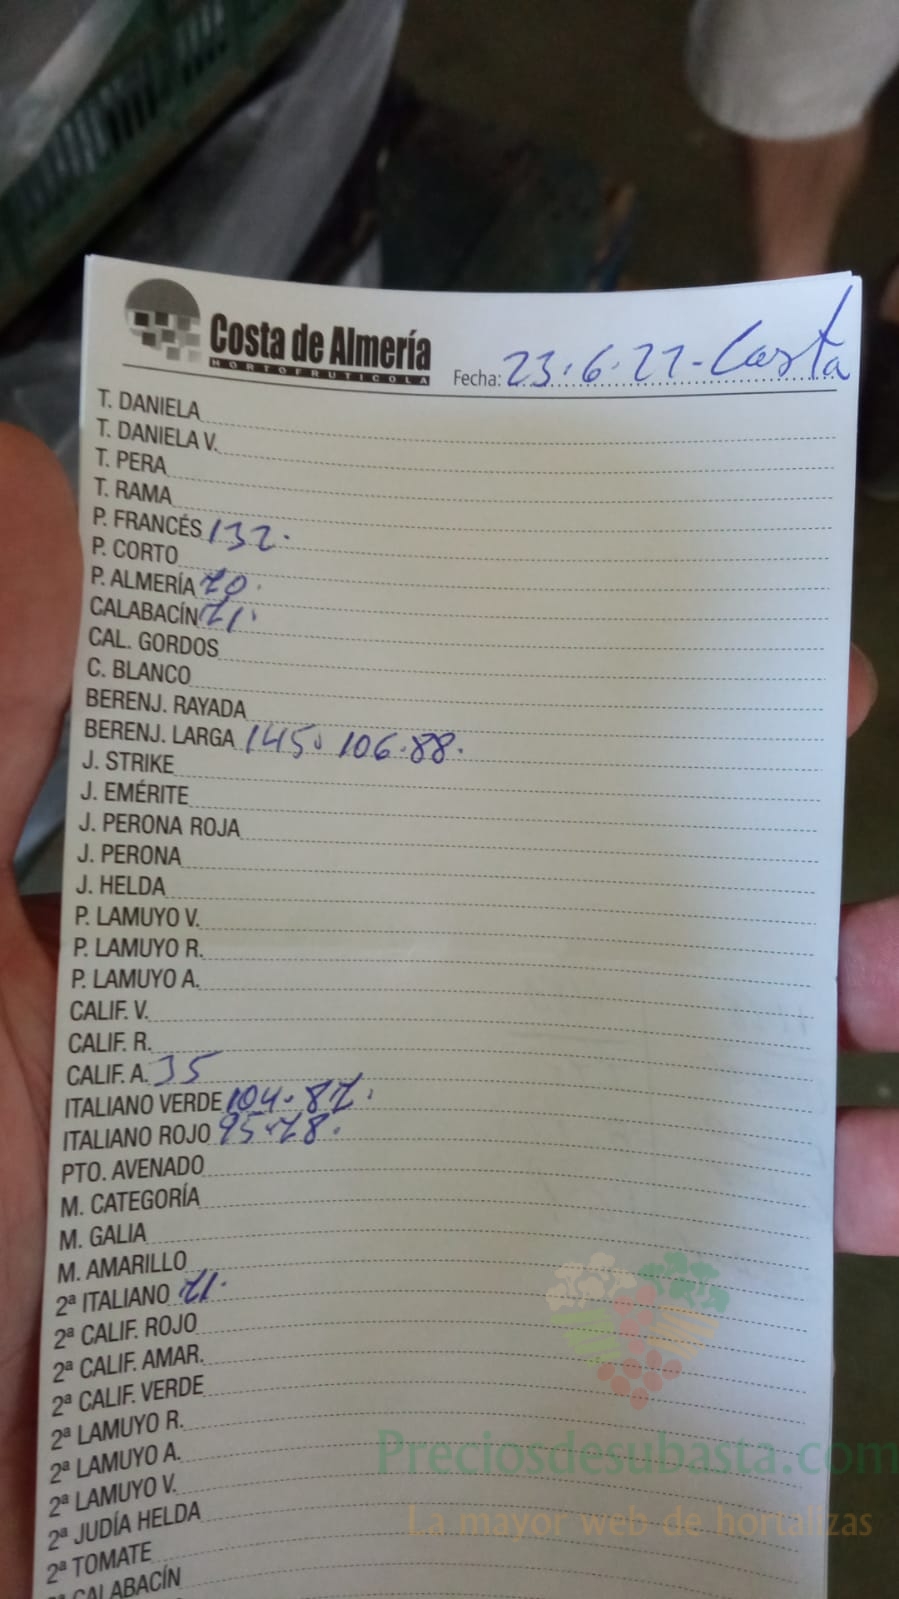 Costa de Almería
HORTOFRUTICOLA
Fecha: 23.6.22-Costa
T. DANIELA
T. DANIELA V.
T. PERA
T. RAMA
P. FRANCÉS 132.
P. CORTO
P. ALMERÍA 70.
CALABACÍN 71.
CAL. GORDOS
C. BLANCO
BERENJ. RAYADA
BERENJ. LARGA 145. 106.88.
J. STRIKE
J. EMÉRITE
J. PERONA ROJA
J. PERONA
J. HELDA
P. LAMUYO V.
P. LAMUYO R.
P. LAMUYO A.
CALIF. V.
CALIF. R.
CALIF. A. 35
ITALIANO VERDE 104.87.
ITALIANO ROJO 95.78.
PTO. AVENADO
M. CATEGORÍA
M. GALIA
M. AMARILLO
2ª ITALIANO 71.
2ª CALIF. ROJO
2ª CALIF. AMAR.
2ª CALIF. VERDE
2ª LAMUYO R.
2ª LAMUYO A.
2ª LAMUYO V.
2ª JUDÍA HELDA
2ª TOMATE
CALABACÍN
Preciosdesubasta.com
La mayor web de hortalizas